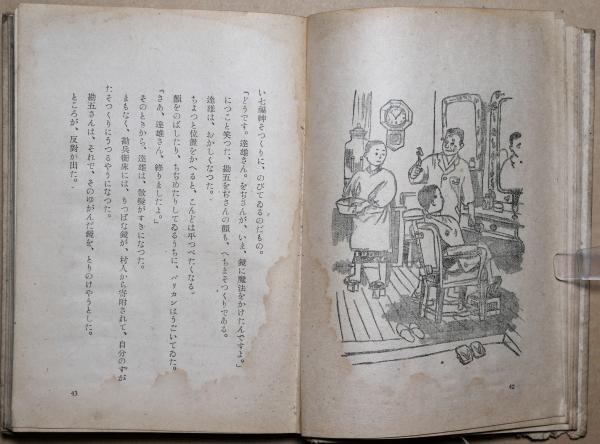 い七福神そつくりに、のびてゐるのだもの。
「どうです。達雄さん。をぢさんが、いま、鏡に魔法をかけたんですよ。」
につこと笑つた、勘五をぢさんの顔も、へちまそつくりである。
達雄は、をかしくなつた。
ちよつと位置をかへると、こんどは平つぺたくなる。
顔をのばしたり、ちぢめたりしてゐるうちに、バリカンはうごいてゐた。
「さあ、達雄さん、終りましたよ。」
そのときから、達雄は、散髪がすきになつた。
まもなく、勘兵衛床には、りつぱな鏡が、村人から寄附されて、自分のすが
たそつくりにうつるやうになつた。
勘五さんは、それで、そのゆがんだ鏡を、とりのけやうとした。
ところが、反對が出た。
43
42